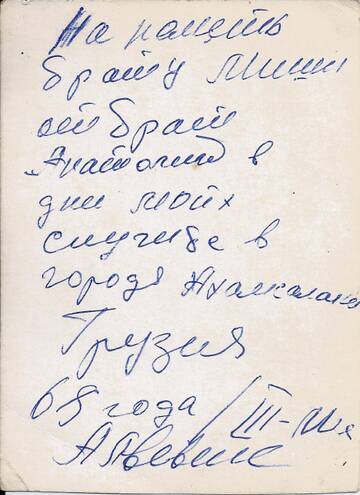 На память
брату Миши
от брат
Анатолий в
дни моих
службе в
городя Ахалкалаки
Грузия
65 года / III-